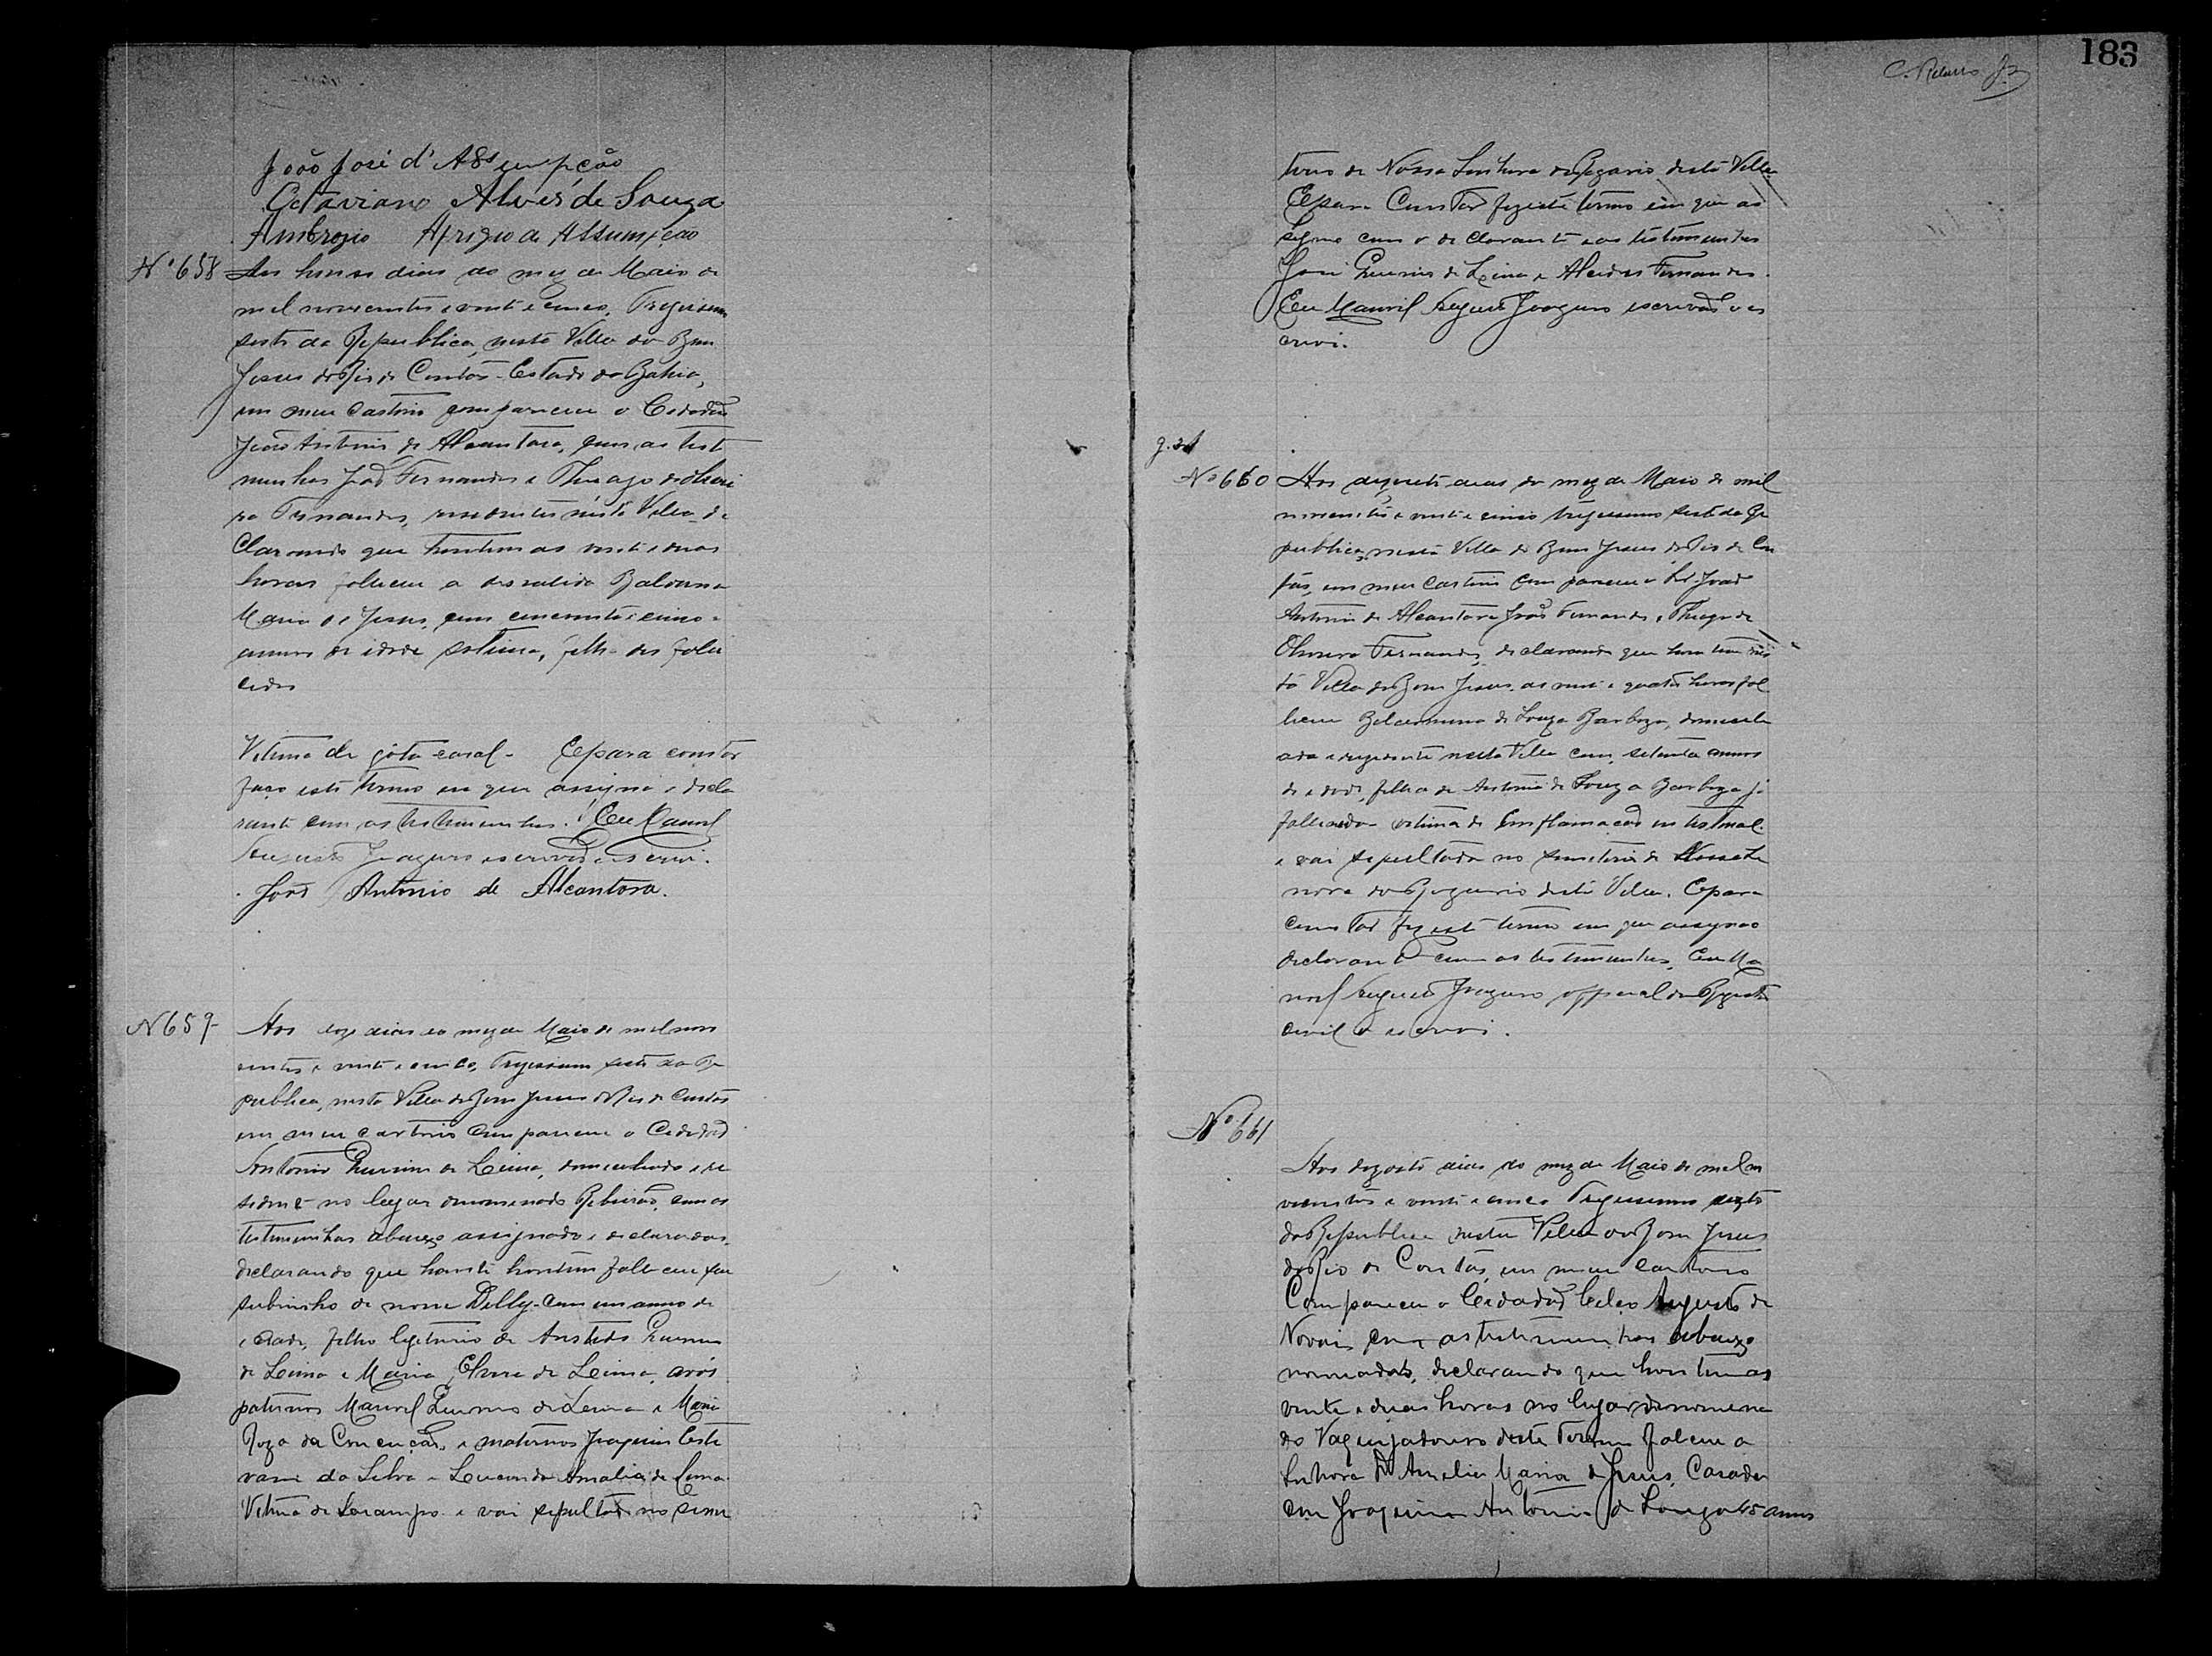 João José d'Assumpção
Octaviano Alves de Souza
Ambrozio Afrizio da Assumpção
Nº 658 Aos dias do mez de Maio de
mil novecentos e vinte e cinco, Trigesimo
sesto da Republica, nesta Villa do Bom
Jesus do Rio de Contas - Estado da Bahia,
em meu Cartorio compareceu o Cidadão
João Antonio de Alcantara, com as teste
munhas João Fernandes e Thiago de Olivei
ra Fernandes, residentes nesta Villa de
clarando que hontem as vinte e duas
horas falleceu a desvalida Balduina
Maria de Jesus, com cincoenta e cinco
annos de idade solteira, filha de falle
cidos
Vitima de góta-coral - E para constar
faço este termo em que assigna o decla
rante com as testemunhas. Eu Manoel
Augusto Joazeiro escrivão o escrevi.
João Antonio de Alcantara.
N 659- Aos doze dias do mez de Maio de mil nove
centos e vinte e cinco, Trigesimo sesto da Re
publica, nesta Villa do Bom Jesus do Rio de Contas
em meu cartorio compareceu o Cidadão
Antonio de Lima, domiciliado e re
sidente no lugar denominado Ribeirão, com as
testemunhas abaixo assignado e declaradas,
declarando que hontem falleceu seu
subrinho de nome Delly - com um anno de
idade, filho legitimo de Aristides
de Lima e Maria Elvira de Lima, avós
paternos Manoel de Lima e Maria
Roza da Conceição, e maternos Joaquim Este
vam da Silva e Leucanda Amalia de Lima
Vitima de Sarampo e vai sepultado no semi
183
terio de Nossa Senhora do Rozario desta Villa.
E para Constar fiz este termo em que as
signo com o declarante e as testemunhas
José de Lima e Alcides Fernandes.
Eu Manoel Augusto Joazeiro escrivão o es
crevi.
Nº 660 Aos dezesete dias do mez de Maio de mil
novecentos e vinte e cinco trigesimo sesto da Re
publica, nesta Villa do Bom Jesus do Rio de Con
tas, em meu Cartorio compareceu o Sr. João
Antonio de Alcantara João Fernandes e Thiago de
Oliveira Fernandes, declarando que hontem nes
ta Villa do Bom Jesus as vinte e quatro horas fal
leceu Belarmina de Souza Barboza, domicili
ada e rezidente nesta Villa com setenta annos
de idade, filha de Antonio de Souza Barboza já
fallecido vitima de Inflamação intestinal
e vai sepultada no semiterio de Nossa Se
nhora do Rozario desta Villa. E para
constar fiz este termo em que assigna o
declarante com as testemunhas. Eu Ma
noel Augusto Joazeiro official do Registro
Civil o escrevi.
Nº 661
Aos dezoito dias do mez de Maio de mil no
vecentos e vinte e cinco Trigesimo sexto
da Republica nesta Villa do Bom Jesus
do Rio de Contas, em meu Cartorio
Compareceu o Cidadão Celço Augusto de
Novais com as testemunhas abaixo
nomeados, declarando que hontem as
vinte e duas horas no lugar denomina
do Vaquejadouro deste Termo faleceu a
Senhora D. Amelia Maria de Jesus, Casada
com Joaquim Antonio de Souza 45 annos